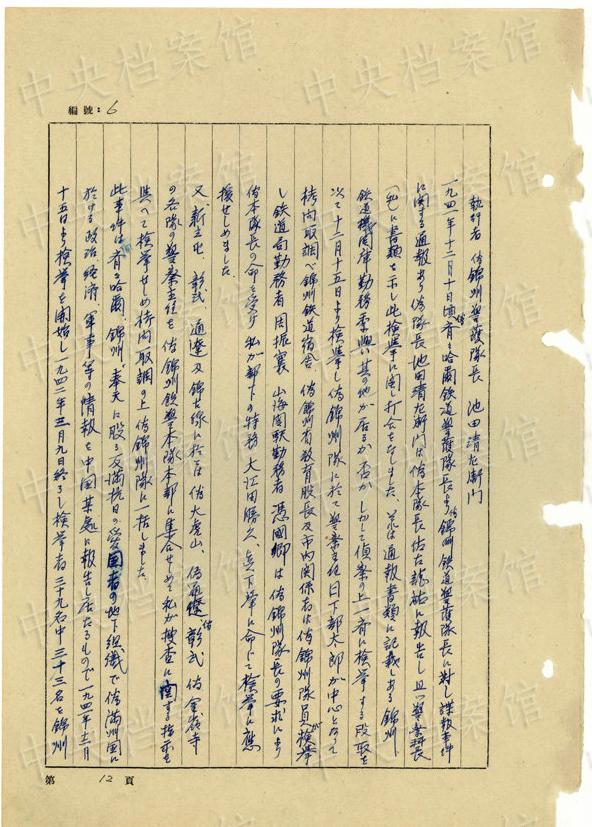 編號：6
執行者 偽錦州警護隊長 池田清左衛門
一九四一年十二月十日頃斉々哈爾鉄道警護隊長より偽錦州鉄道警護隊長に対し諜報事件
に関する通報あり偽隊長池田清左衛門は偽本隊長佐古龍祐に報告し且つ警務科長
(私)に書類を示し此検挙に関し打合をなしました、それは通報書類に記載しある錦州
鉄道機関庫勤務 其の他が居るか否か しかして偵察の上一斉に検挙する段取を
以て十二月十五日より検挙し偽錦州隊に於て警察主任日下部太郎が中心となつて
拷問取調べ錦州鉄道宿舎 偽錦州省教育股長及市内関係者は偽錦州隊員が検挙
し鉄道局勤務者周振寰 山海関駅勤務者馮國卿は偽錦州隊長の要求により
偽本隊長の命を受け私が部下の特務大江田勝久、 に命じて検挙に應
援せしめました
又、新立屯、彰武、通遼及錦古線に於ては 偽大虎山、偽通遼、偽彰武 偽金嶺寺
の各隊の警察主任を偽錦州鉄警本隊本部に集合せしめて私が捜査に関する指示を
與へて検挙せしめ拷問取調の上偽錦州隊に一括しました
此事件は斉々哈爾、錦州、奉天に股る反満抗日の愛国者の地下組織で偽満州国に
於ける政治経済、軍事等の情報を中国某處に報告し居たるもので一九四一年十二月
十五日より検挙を開始し一九四二年三月九日終了し検挙者三十九名中三十三名を錦州
第 12 頁
中央档案馆